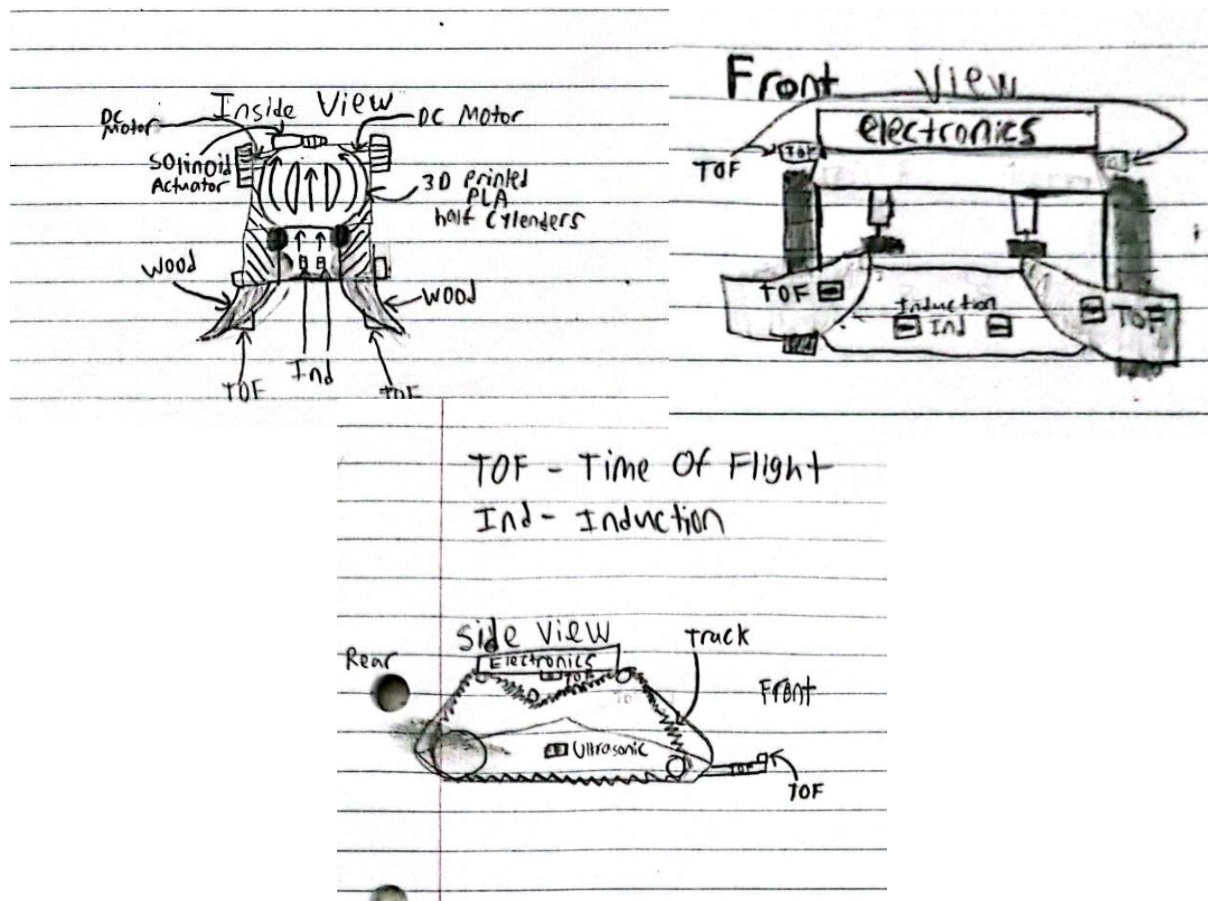 Inside View
DC
Motor
DC Motor
Solinoid
Actuator
3D Printed
PLA
half Cylenders
Wood
Wood
TOF
Ind
TOF
Front View
electronics
TOF
TOF
TOF
Induction
Ind
TOF
TOF - Time Of Flight
Ind - Induction
Side View
Track
Rear
Electronics
TOF
Front
Ultrasonic
TOF
TOF